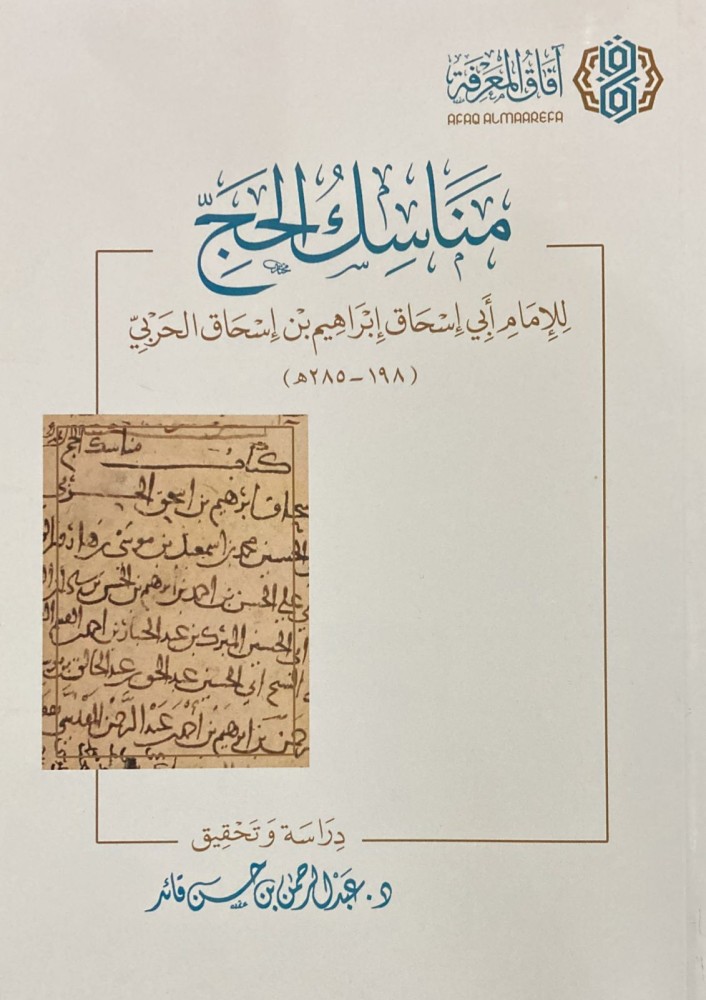 آفاق المعرفة
AFAQ ALMAAREFA
مَنَاسِكُ الحَجِّ
لِلإِمَامِ أَبِي إِسْحَاق إِبْرَاهِيم بْن إِسْحَاق الحَرْبِيّ
(١٩٨ - ٢٨٥هـ)
كتاب مناسك الحج
ابرهيم بن اسحق الحربي
الحسين محمد بن اسمعيل بن موسى
علي الحسن بن احمد بن ابرهيم بن الحسن بن
الحسين المبرك بن عبد الجبار بن احمد
الشيخ ابي الحسين عبد الحق عبد الخالق بن
بن ابرهيم بن أحمد عبد الرحمن المقدسي
دِرَاسَة وَتَحْقِيق
د. عَبْد الرحمن بن حسن قائد